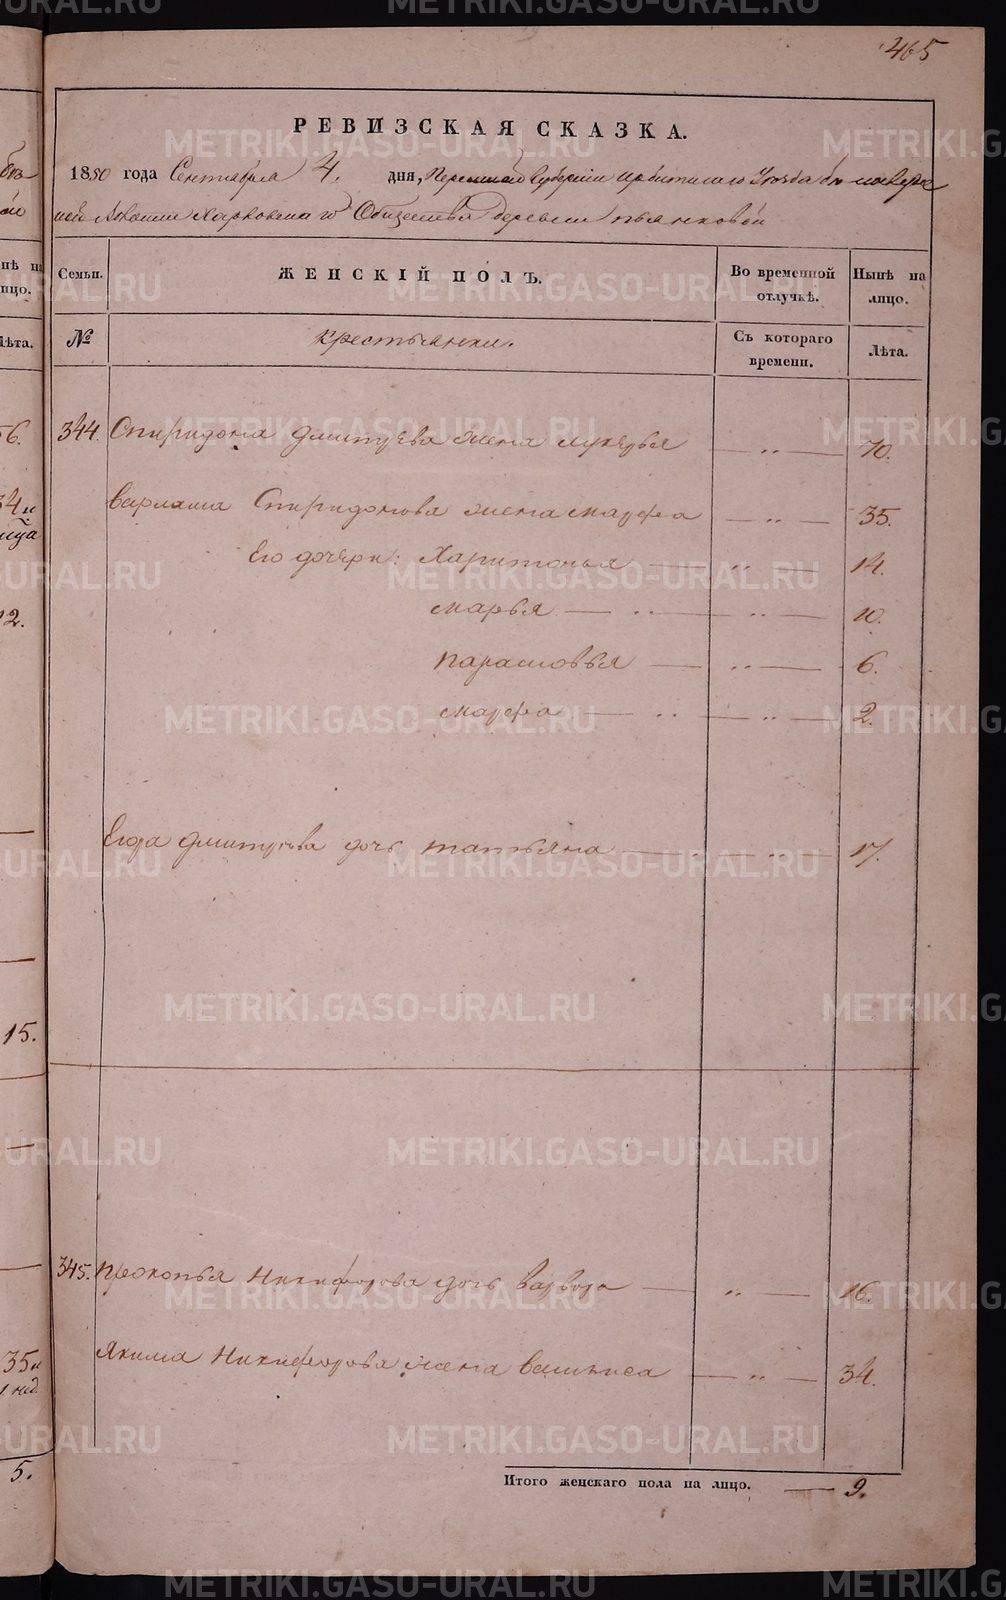 465
РЕВИЗСКАЯ СКАЗКА.
1850 года Сентября 4. дня, Пермской Губернии Ирбитскаго Уезда
Харловскаго Общества деревни Пьянковой
Семьи. ЖЕНСКІЙ ПОЛЪ. Во временной отлучкѣ. Нынѣ на лицо.
№ Крестьянки. Съ котораго времени. Лѣта.
344. Спиридона Дмитрева жена Лукерья — „ — 70.
Варлама Спиридонова жена Марфа — „ — 35.
Его дочери: Харитонья — „ — 14.
Марья — „ — „ — 10.
Парасковья — „ — 6.
Марфа — „ — „ — 2.
Егора Дмитрева дочь Татьяна — „ — 17.
345. Прокопья Никифорова дочь Варвара — „ — 16.
Якима Никифорова жена — „ — 34.
Итого женскаго пола на лицо. — 9.
56.
12.
15.
5.
METRIKI.GASO-URAL.RU